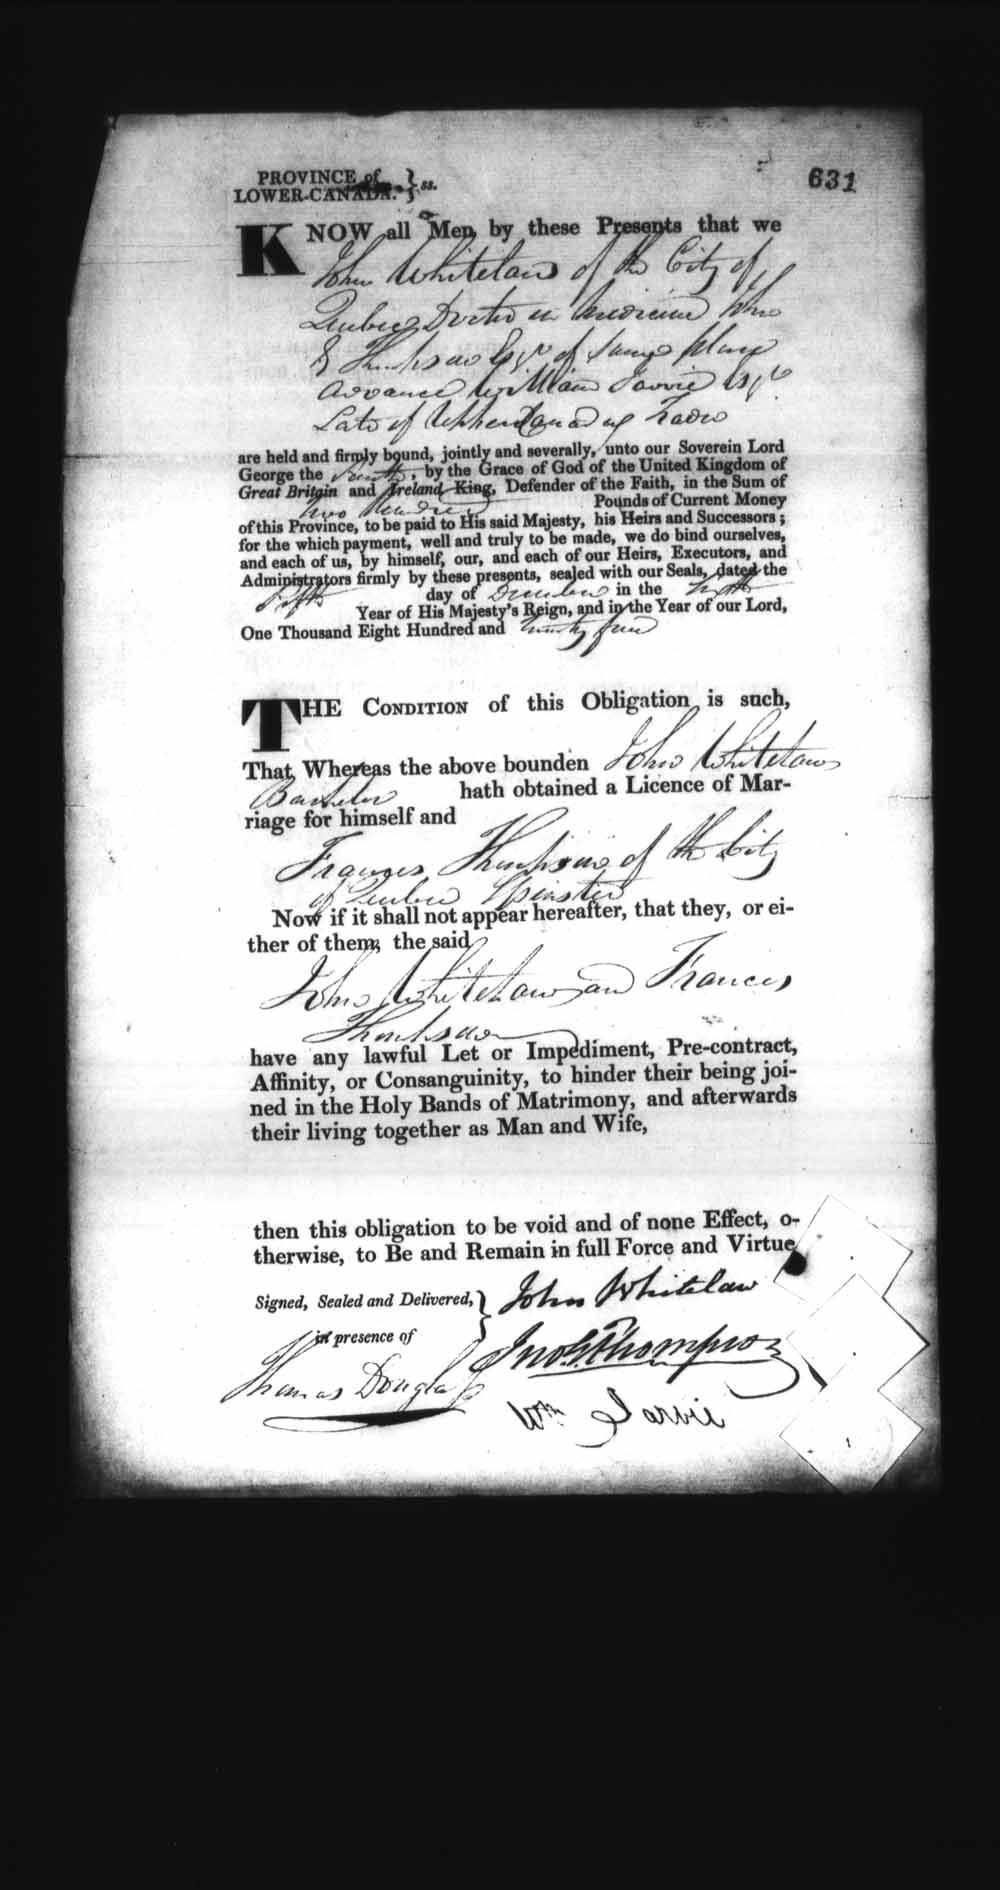 631
PROVINCE of
LOWER-CANADA. } ss.
KNOW all Men by these Presents that we
John Whitelaw of the City of
Quebec Doctor in Medicine John
G Thompson Esqr of same place
Advocate William Jarvie Esqr
Late of Upper Canada
are held and firmly bound, jointly and severally, unto our Soverein Lord
George the Fourth, by the Grace of God of the United Kingdom of
Great Britain and Ireland King, Defender of the Faith, in the Sum of
two hundred Pounds of Current Money
of this Province, to be paid to His said Majesty, his Heirs and Successors ;
for the which payment, well and truly to be made, we do bind ourselves,
and each of us, by himself, our, and each of our Heirs, Executors, and
Administrators firmly by these presents, sealed with our Seals, dated the
Fifth day of December in the
Year of His Majesty's Reign, and in the Year of our Lord,
One Thousand Eight Hundred and twenty
THE CONDITION of this Obligation is such,
That Whereas the above bounden John Whitelaw
Bachelor hath obtained a Licence of Mar-
riage for himself and
Frances Thompson of the City
of Quebec Spinster
Now if it shall not appear hereafter, that they, or ei-
ther of them, the said
John Whitelaw and Frances
Thompson
have any lawful Let or Impediment, Pre-contract,
Affinity, or Consanguinity, to hinder their being joi-
ned in the Holy Bands of Matrimony, and afterwards
their living together as Man and Wife,
then this obligation to be void and of none Effect, o-
therwise, to Be and Remain in full Force and Virtue
Signed, Sealed and Delivered, } John Whitelaw
in presence of Jno G Thompson
Thomas Douglas Wm Jarvie